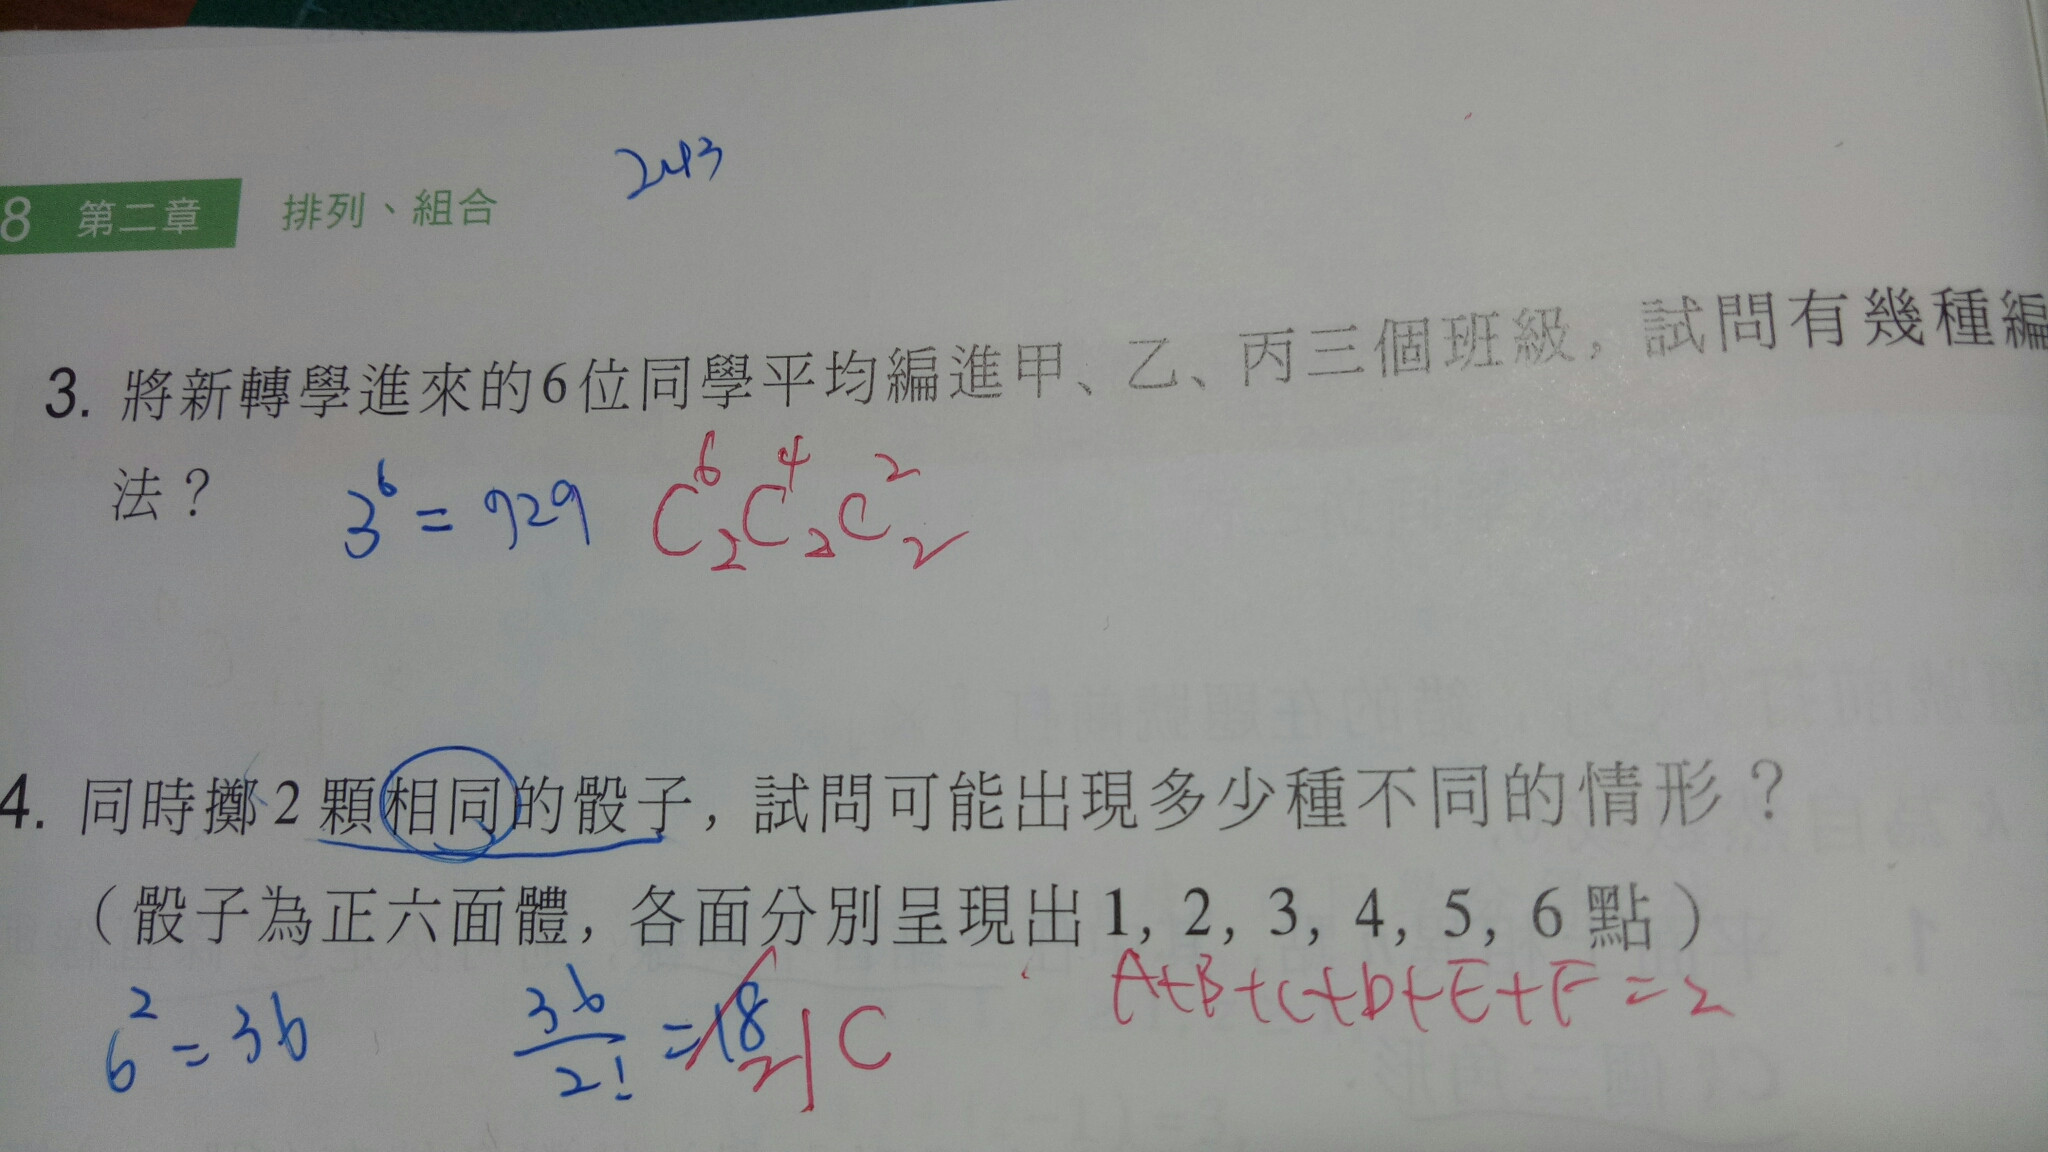 243
8 第二章 排列、組合
3. 將新轉學進來的6位同學平均編進甲、乙、丙三個班級，試問有幾種編
法？ 3^6 = 729 C^6_2 C^4_2 C^2_2
4. 同時擲2顆相同的骰子，試問可能出現多少種不同的情形？
（骰子為正六面體，各面分別呈現出1, 2, 3, 4, 5, 6點）
6^2 = 36 36/2! = 18 21 C A+B+C+D+E+F=2